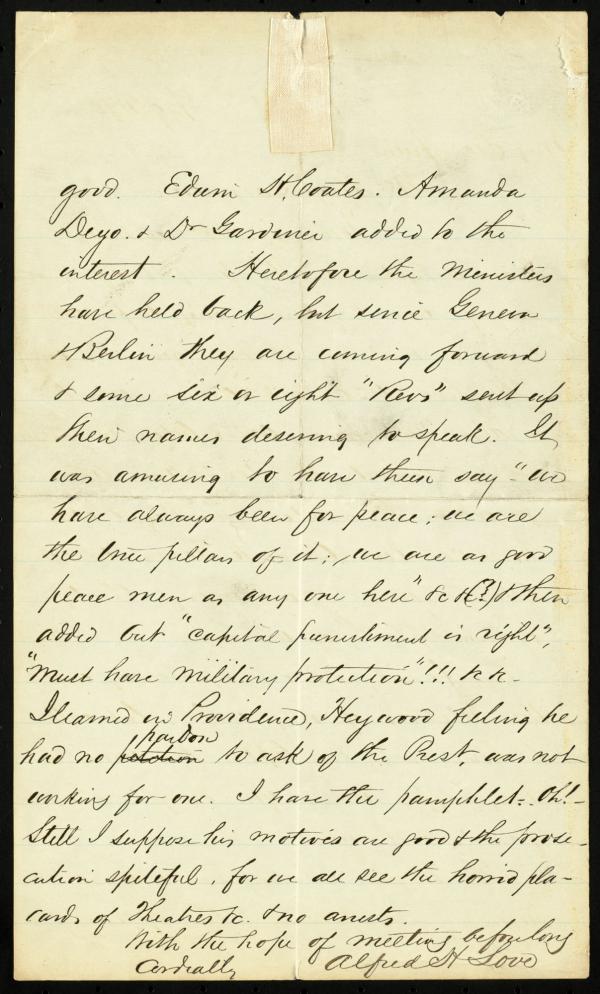 good. Edwin H. Coates. Amanda
Deyo. & Dr Gardiner added to the
interest. Heretofore the Ministers
have held back, but since Geneva
& Berlin they are coming forward
& some six or eight "Revs" sent up
their names desiring to speak. It
was amusing to have them say - "we
have always been for peace; we are
the true pillars of it; we are as good
peace men as any one here" &c &c (?) & then
added but "capital punishment is right",
"Must have military protection"!!! &c &c -
I learned in Providence, Heywood feeling he
pardon
had no petition to ask of the Prest, was not
working for one. I have the pamphlet - Oh! -
Still I suppose his motives are good & the prose-
cution spiteful, for we all see the horrid pla-
cards of Theatres &c. & no arrests.
With the hope of meeting before long
Cordially Alfred H Love